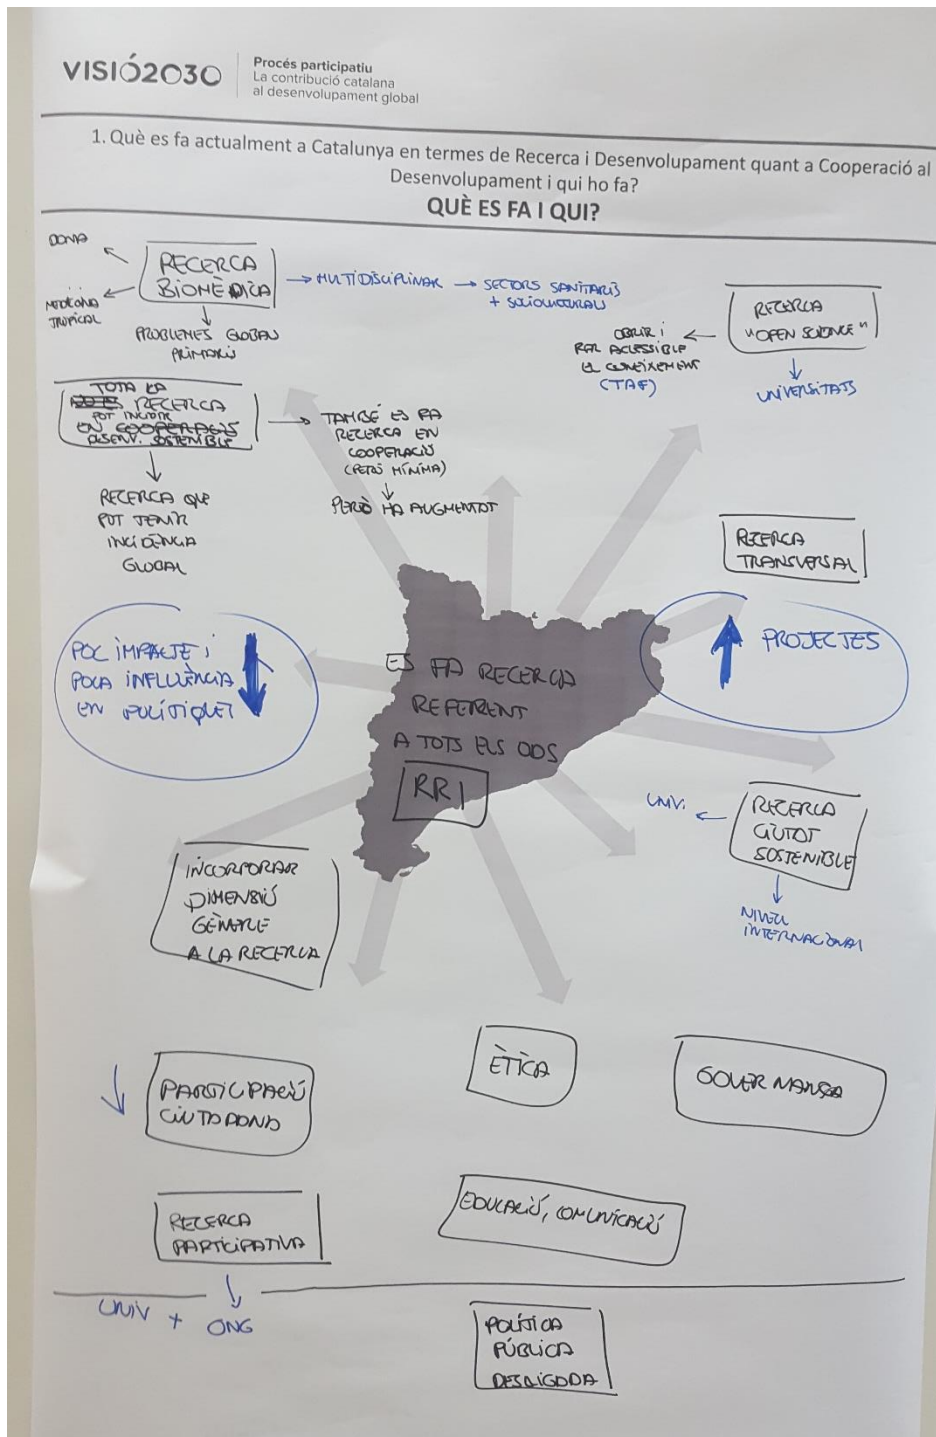 VISIÓ2030
Procés participatiu
La contribució catalana
al desenvolupament global
1. Què es fa actualment a Catalunya en termes de Recerca i Desenvolupament quant a Cooperació al
Desenvolupament i qui ho fa?
QUÈ ES FA I QUI?
DONA
RECERCA
BIOMÈDICA
→ MULTIDISCIPLINAR → SECTORS SANITARIS
+ SOCIOCULTURALS
MEDICINA
TROPICAL
PROBLEMES GLOBALS
PRIMARIS
RECERCA
"OPEN SCIENCE"
OBRIR I
FER ACCESSIBLE
EL CONEIXEMENT
UNIVERSITATS
TOTA LA
RECERCA
POT INCIDIR
EN COOPERACIÓ
DESENV. SOSTENIBLE
TAMBÉ ES FA
RECERCA EN
COOPERACIÓ
(PERÒ MÍNIMA)
PERÒ HA AUGMENTAT
RECERCA QUE
POT TENIR
INCIDÈNCIA
GLOBAL
RECERCA
TRANSVERSAL
POC IMPACTE I
POCA INFLUÈNCIA
EN POLÍTIQUES
ES FA RECERCA
REFERENT
A TOTS ELS ODS
RRI
PROJECTES
UNIV.
RECERCA
CIUTAT
SOSTENIBLE
NIVELL
INTERNACIONAL
INCORPORAR
DIMENSIÓ
GÈNERE
A LA RECERCA
PARTICIPACIÓ
CIUTADANA
ÈTICA
GOVERNANÇA
RECERCA
PARTICIPATIVA
EDUCACIÓ, COMUNICACIÓ
UNIV + ONG
POLÍTICA
PÚBLICA
DESLIGADA